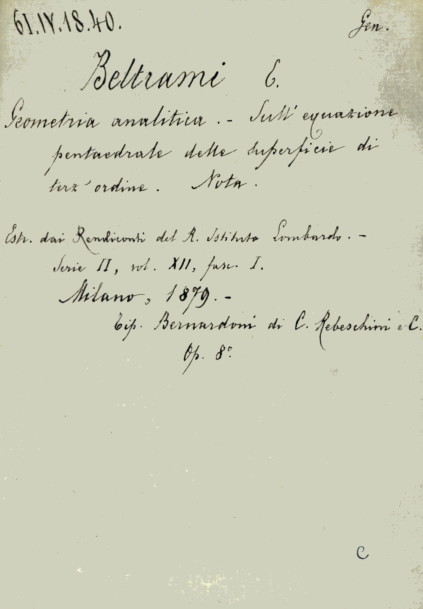 61.IV.18.40.
Gen.
Beltrami E.
Geometria analitica. - Sull' equazione
pentaedrale delle superficie di
terz' ordine. Nota.
Estr. dai Rendiconti del R. Istituto Lombardo. -
Serie II, vol. XII, fasc. I.
Milano, 1879. -
Tip. Bernardoni di C. Rebeschini e C.
Op. 8°
C